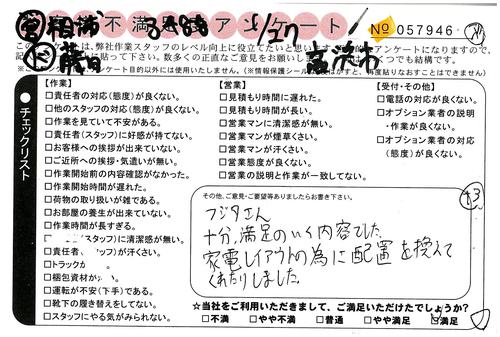 不満足アンケート
No 057946
ケートは、弊社作業スタッフのレベル向上に役立てたいと思います
チェックリスト
【作業】
□責任者の対応(態度)が良くない。
□他のスタッフの対応(態度)が良くない。
□作業を見ていて不安がある。
□責任者(スタッフ)に好感が持てない。
□お客様への挨拶が出来ていない。
□ご近所への挨拶・気遣いが無い。
□作業開始前の内容確認がなかった。
□作業開始時間が遅れた。
□荷物の取り扱いが雑である。
□お部屋の養生が出来ていない。
□作業時間が長すぎる。
(スタッフ)に清潔感が無い。
□責任者(スタッフ)が汗くさい。
□トラックが
□梱包資材が
□運転が不安(下手)である。
□靴下の履き替えをしてない。
□スタッフにやる気がみられない。
【営業】
□見積もり時間に遅れた。
□見積もり時間が長い。
□営業マンに清潔感が無い。
□営業マンが煙草くさい。
□営業マンが汗くさい。
□営業態度が良くない。
□営業の説明と作業が一致してない。
【受付・その他】
□電話の対応が良くない。
□オプション業者の説明
・作業が良くない。
□オプション業者の対応
(態度)が良くない。
その他、ご意見・ご要望等ありましたらお書き下さい。
フジタさん
十分、満足のいく内容でした
家電レイアウトの為に配置を換えて
くれたりしました
☆当社をご利用いただきまして、ご満足いただけたでしょうか?
□不満 □やや不満 □普通 □やや満足 □満足